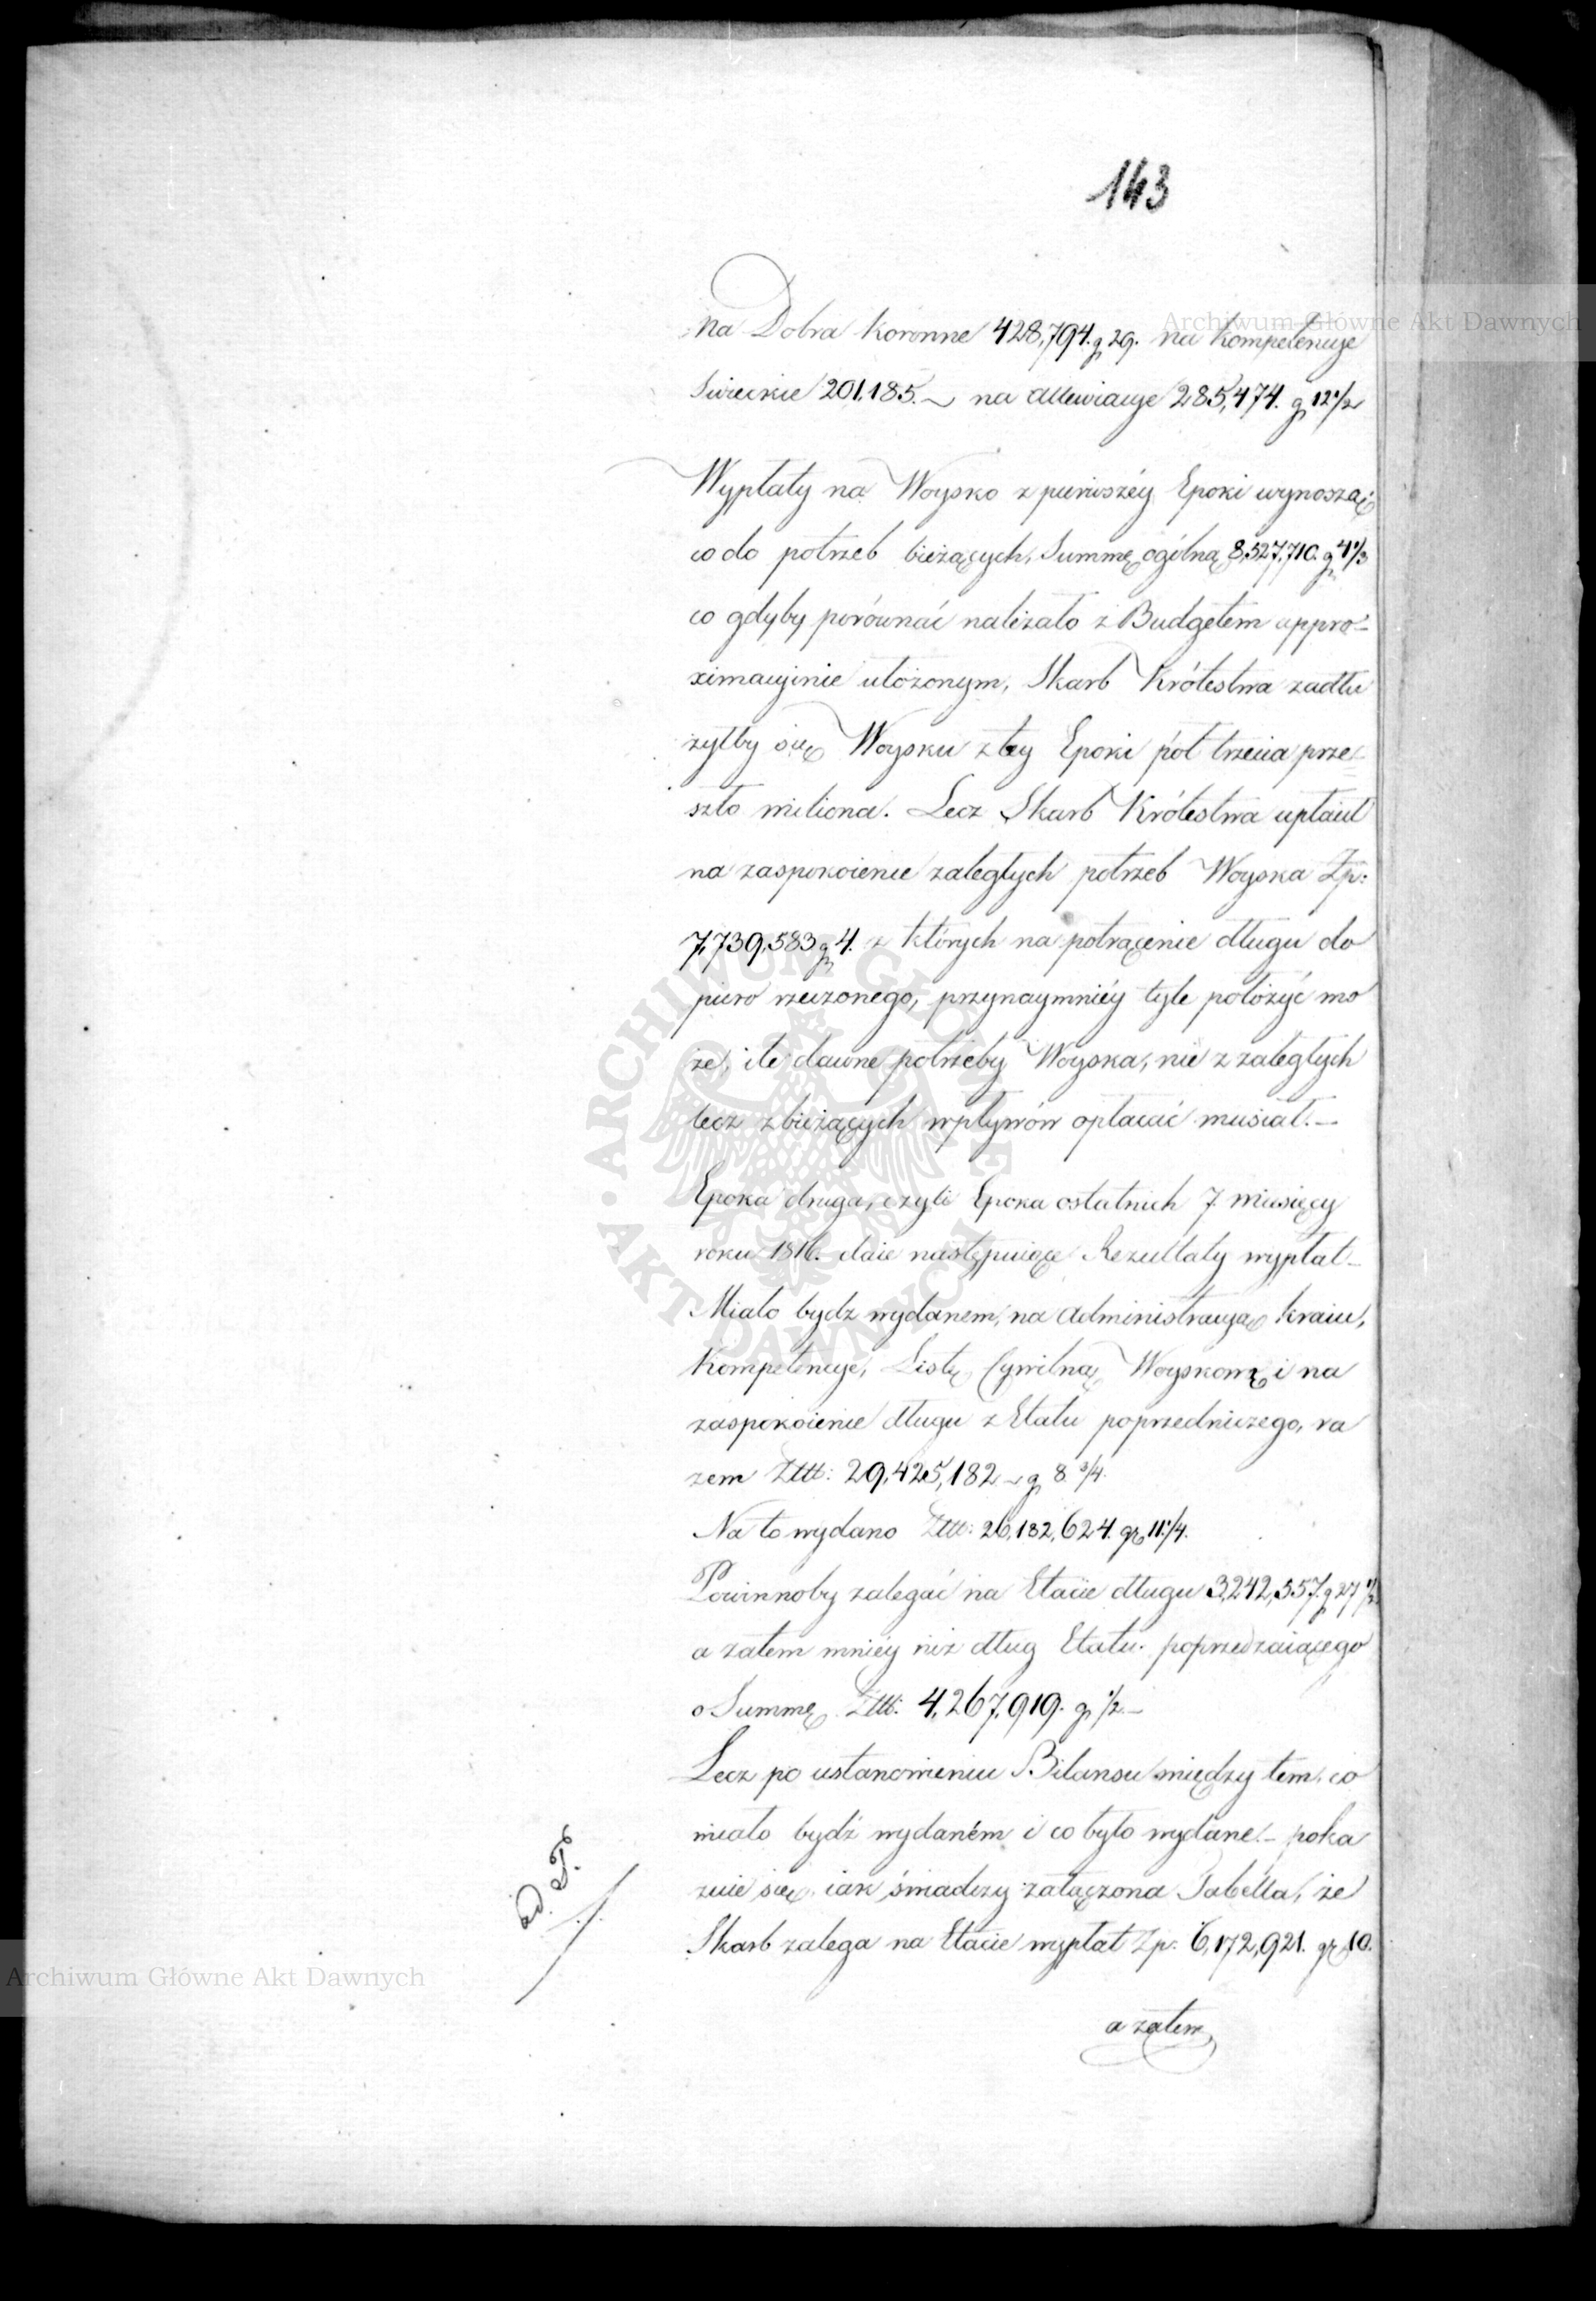 143
na Dobra Koronne 428,794. g 29. na kompetencye
Swieckie 201,185. – na allewiacye 285,474. g 12 1/2
Wypłaty na Woysko z pierwszéy Epoki wynoszą
co do potrzeb bieżących, Summę ogólną 8,527,710. g 4 1/3
co gdyby porównać należało z Budgetem appro-
ximacyinie ułożonym, Skarb Królestwa zadłu
żyłby się Woysku z tey Epoki pół trzecia prze-
szło miliona. Lecz Skarb Królestwa upłacił
na zaspokoienie zaległych potrzeb Woyska Zp:
7,739,583 g 4. z których na potrącenie długu do
piero rzeczonego, przynaymniéy tyle położyć mo
że, ile dawne potrzeby Woyska, nie z zaległych
lecz z bieżących wpływów opłacać musiał. –
Epoka druga, czyli Epoka ostatnich 7. miesięcy
roku 1816. daie następuiące Rezultaty wypłat –
Miało bydz wydanem, na administracyą kraiu,
Kompetencye, Listę Cywilną, Woyskową i na
zaspokoienie długu z Etatu poprzedniczego, ra
zem Złłł: 29,425,182 – g 8 3/4.
Na to wydano Złłł: 26,182,624. gr 11 1/4.
Powinnoby zalegać na Etacie długu 3,242,557. g 27 1/2
a zatem mniéy niż dług Etatu poprzedzaiącego
o Summę Złłł: 4,267,919. g 1/2 –
Lecz po ustanowieniu Bilansu między tem, co
miało bydź wydaném i co było wydane – poka
zuie się, iak świadczy załączona Tabella, że
Skarb zalega na Etacie wypłat Zp: 6,172,921. gr 10.
a zatem
Archiwum Główne Akt Dawnych
Archiwum Główne Akt Dawnych
ARCHIWUM GŁÓWNE AKT DAWNYCH